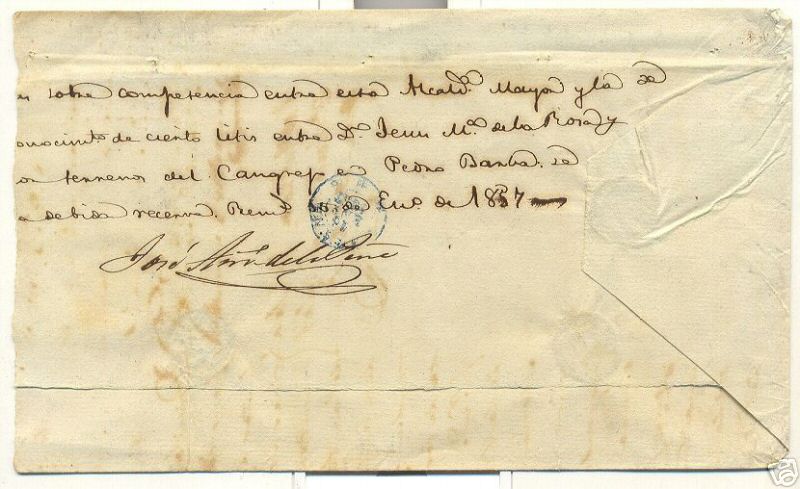 sobre competencia entre esta Alcald.ª Mayor y la de
onocim.to de cierto litis entre D. M.ª de la Rosa y
terrenos del Cangrejo Pedro Barba. se
a debida reserva. Rem.s de En.o de 1857
José de la Peña